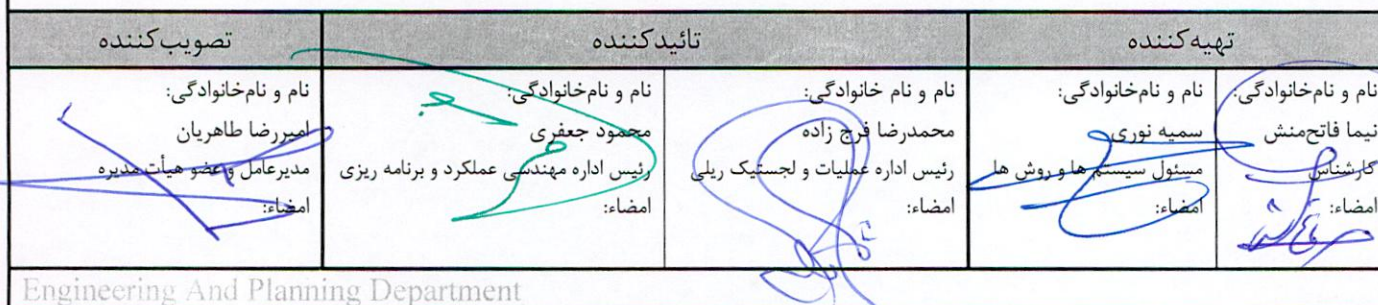 تهیه‌کننده
تائیدکننده
تصویب‌کننده
نام و نام‌خانوادگی:
نیما فاتح‌منش
کارشناس
امضاء:
نام و نام‌خانوادگی:
سمیه نوری
مسئول سیستم ها و روش ها
امضاء:
نام و نام خانوادگی:
محمدرضا فرج زاده
رئیس اداره عملیات و لجستیک ریلی
امضاء:
نام و نام‌خانوادگی:
محمود جعفری
رئیس اداره مهندسی عملکرد و برنامه ریزی
امضاء:
نام و نام‌خانوادگی:
امیررضا طاهریان
مدیرعامل و عضو هیأت مدیره
امضاء:
Engineering And Planning Department